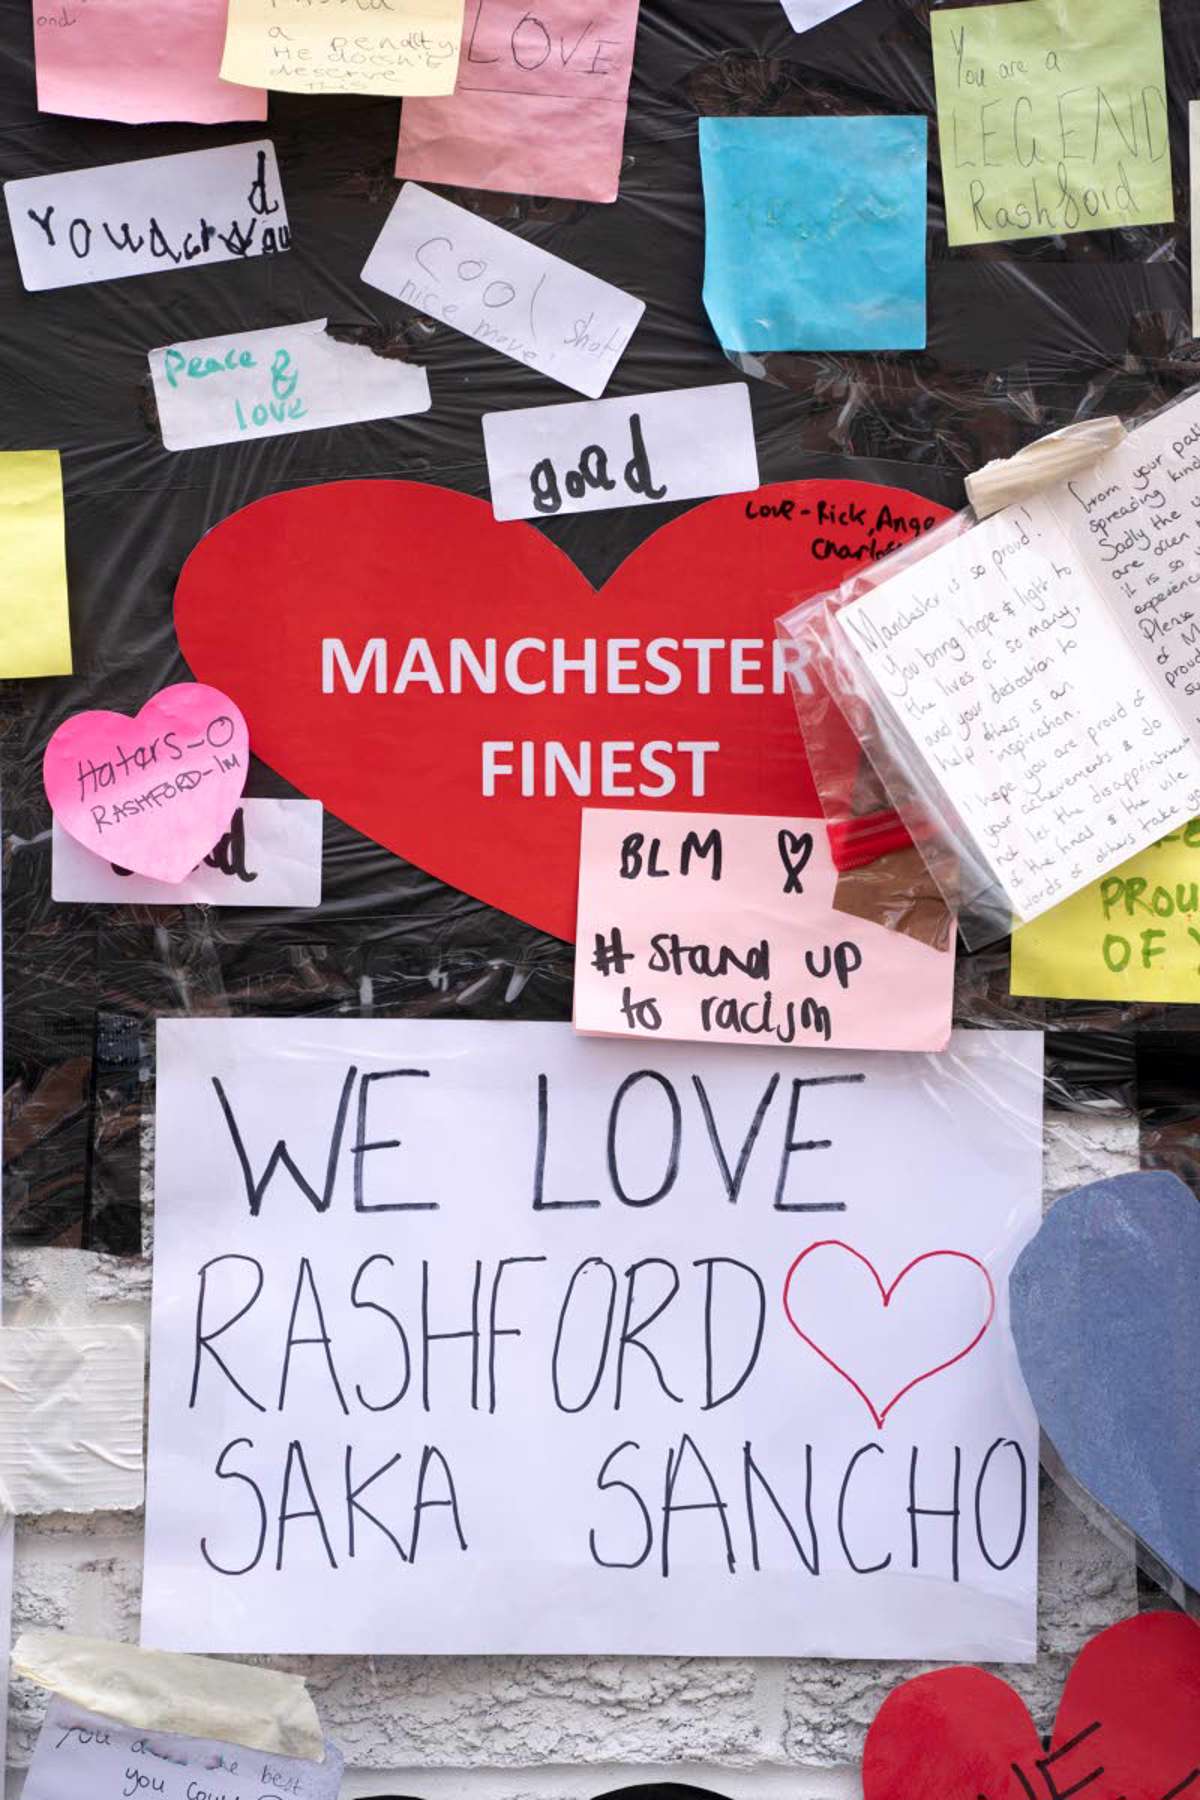 ond
a
penalty.
He doesn't
deserve
this
LOVE
You are a
LEGEND
Rashford
d
You
cool
nice move
shot!
Peace &
love
good
Love - Rick, Ange
MANCHESTER
FINEST
Manchester is so proud!
You bring hope & light to
the lives of so many,
and your dedication to
help others is an
inspiration.
I hope you are proud of
your achievements & do
not let the disappointment
of the final & the vile
words of others take
from your
spreading
Sadly the
are often
it is so
Please
of M
proud
Haters-0
RASHFORD-1M
d
BLM
# Stand up
to racism
PROU
OF
WE LOVE
RASHFORD
SAKA SANCHO
You the best
you